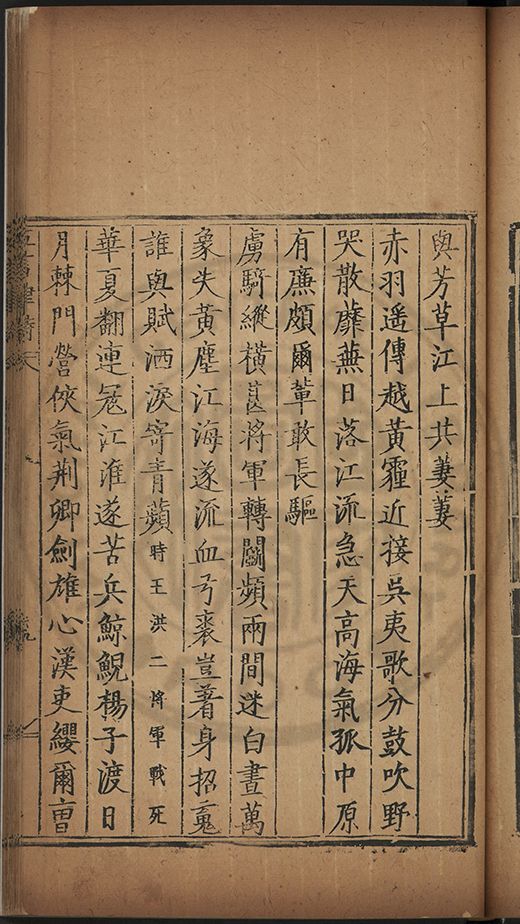 與芳草江上共萋萋
赤羽遥傳越黃霾近接吳夷歌分鼓吹野
哭散蘼蕪日落江流急天高海氣孤中原
有廉頗爾輩敢長驅
虜騎縱橫甚將軍轉鬬頻兩間迷白晝萬
象失黃塵江海遂流血弓裘豈著身招䰟
誰與賦洒淚寄青蘋時王洪二將軍戰死
華夏翻連冦江淮遂苦兵鯨鯢楊子渡日
月棘門營俠氣荆卿劍雄心漢吏纓爾曹
五言律詩